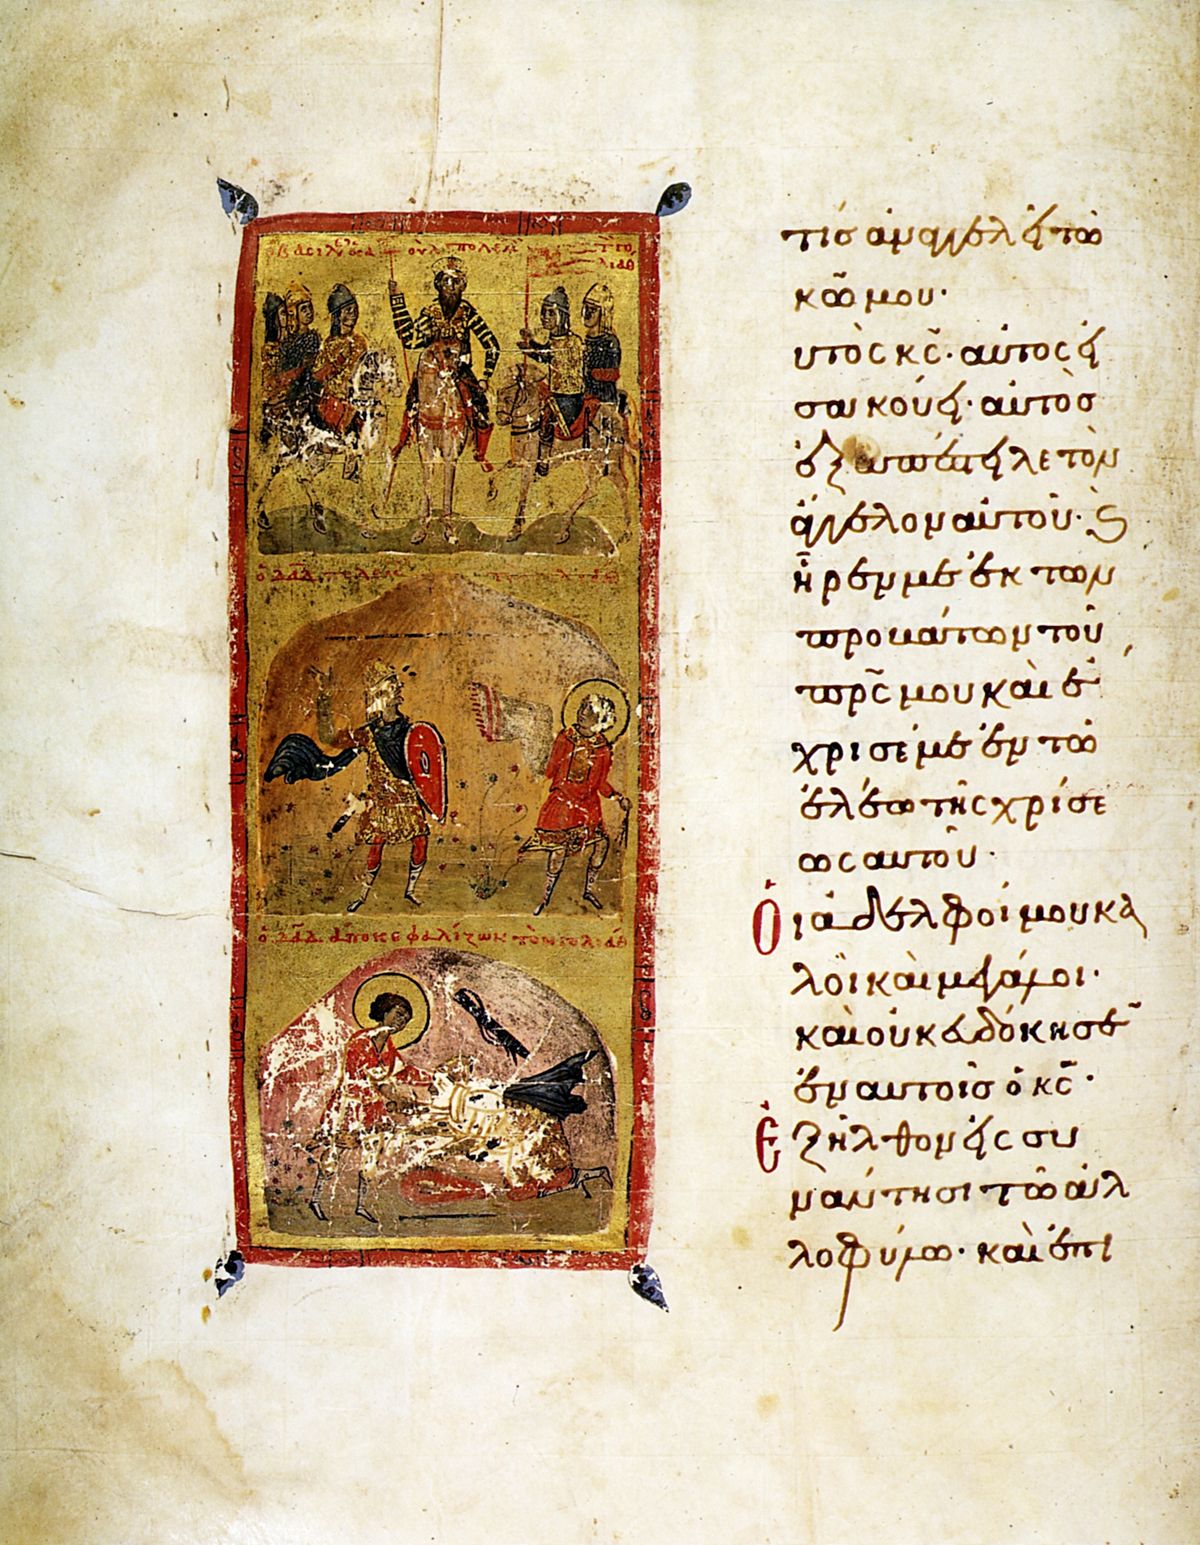 Βασιλεὺς ὁ Σαοὺλ πολεμ
τ Γο
λιάθ
ὁ Δᾶδ πολεμ
ὁ Δᾶδ ἀποκεφαλίζων τὸν Γολιάθ
τίς ἀναγγελεῖ τῶ
κω̄ μου·
υτὸς κς̄· αὐτὸς εἰ
σακούει· αὐτὸσ
ἐξαπέστειλε τὸν
ἄγγελον αὐτοῦ· ϛ
ἦρέν με ἐκ τῶν
προβάτων τοῦ
πρς̄ μου καὶ ἔ
χρισέ με ἐν τῶ
ἐλέω τῆς χρίσε
ως αὐτοῦ·
Ὁι ἀδελφοί μου κα
λοὶ καὶ μεγάλοι·
καὶ οὐκ ευδόκησεν
ἐν αὐτοῖσ ὁ κς̄·
Ἐξῆλθον εἰς συ
νάντησι τῶ ἀλ
λοφύλω· καὶ ἐπι